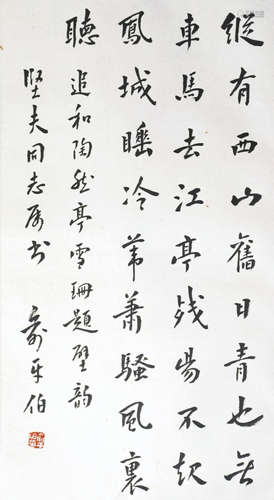 縱有西山舊日青也無
車馬去江亭殘陽不起
鳳城睡冷葦蕭騷風裏
聽 追和陶然亭雪珊題壁韵
堅夫同志属书 俞平伯